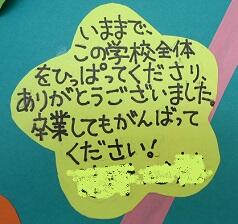 いままで、
この学校全体
をひっぱってくださり、
ありがとうございました。
卒業してもがんばって
ください!